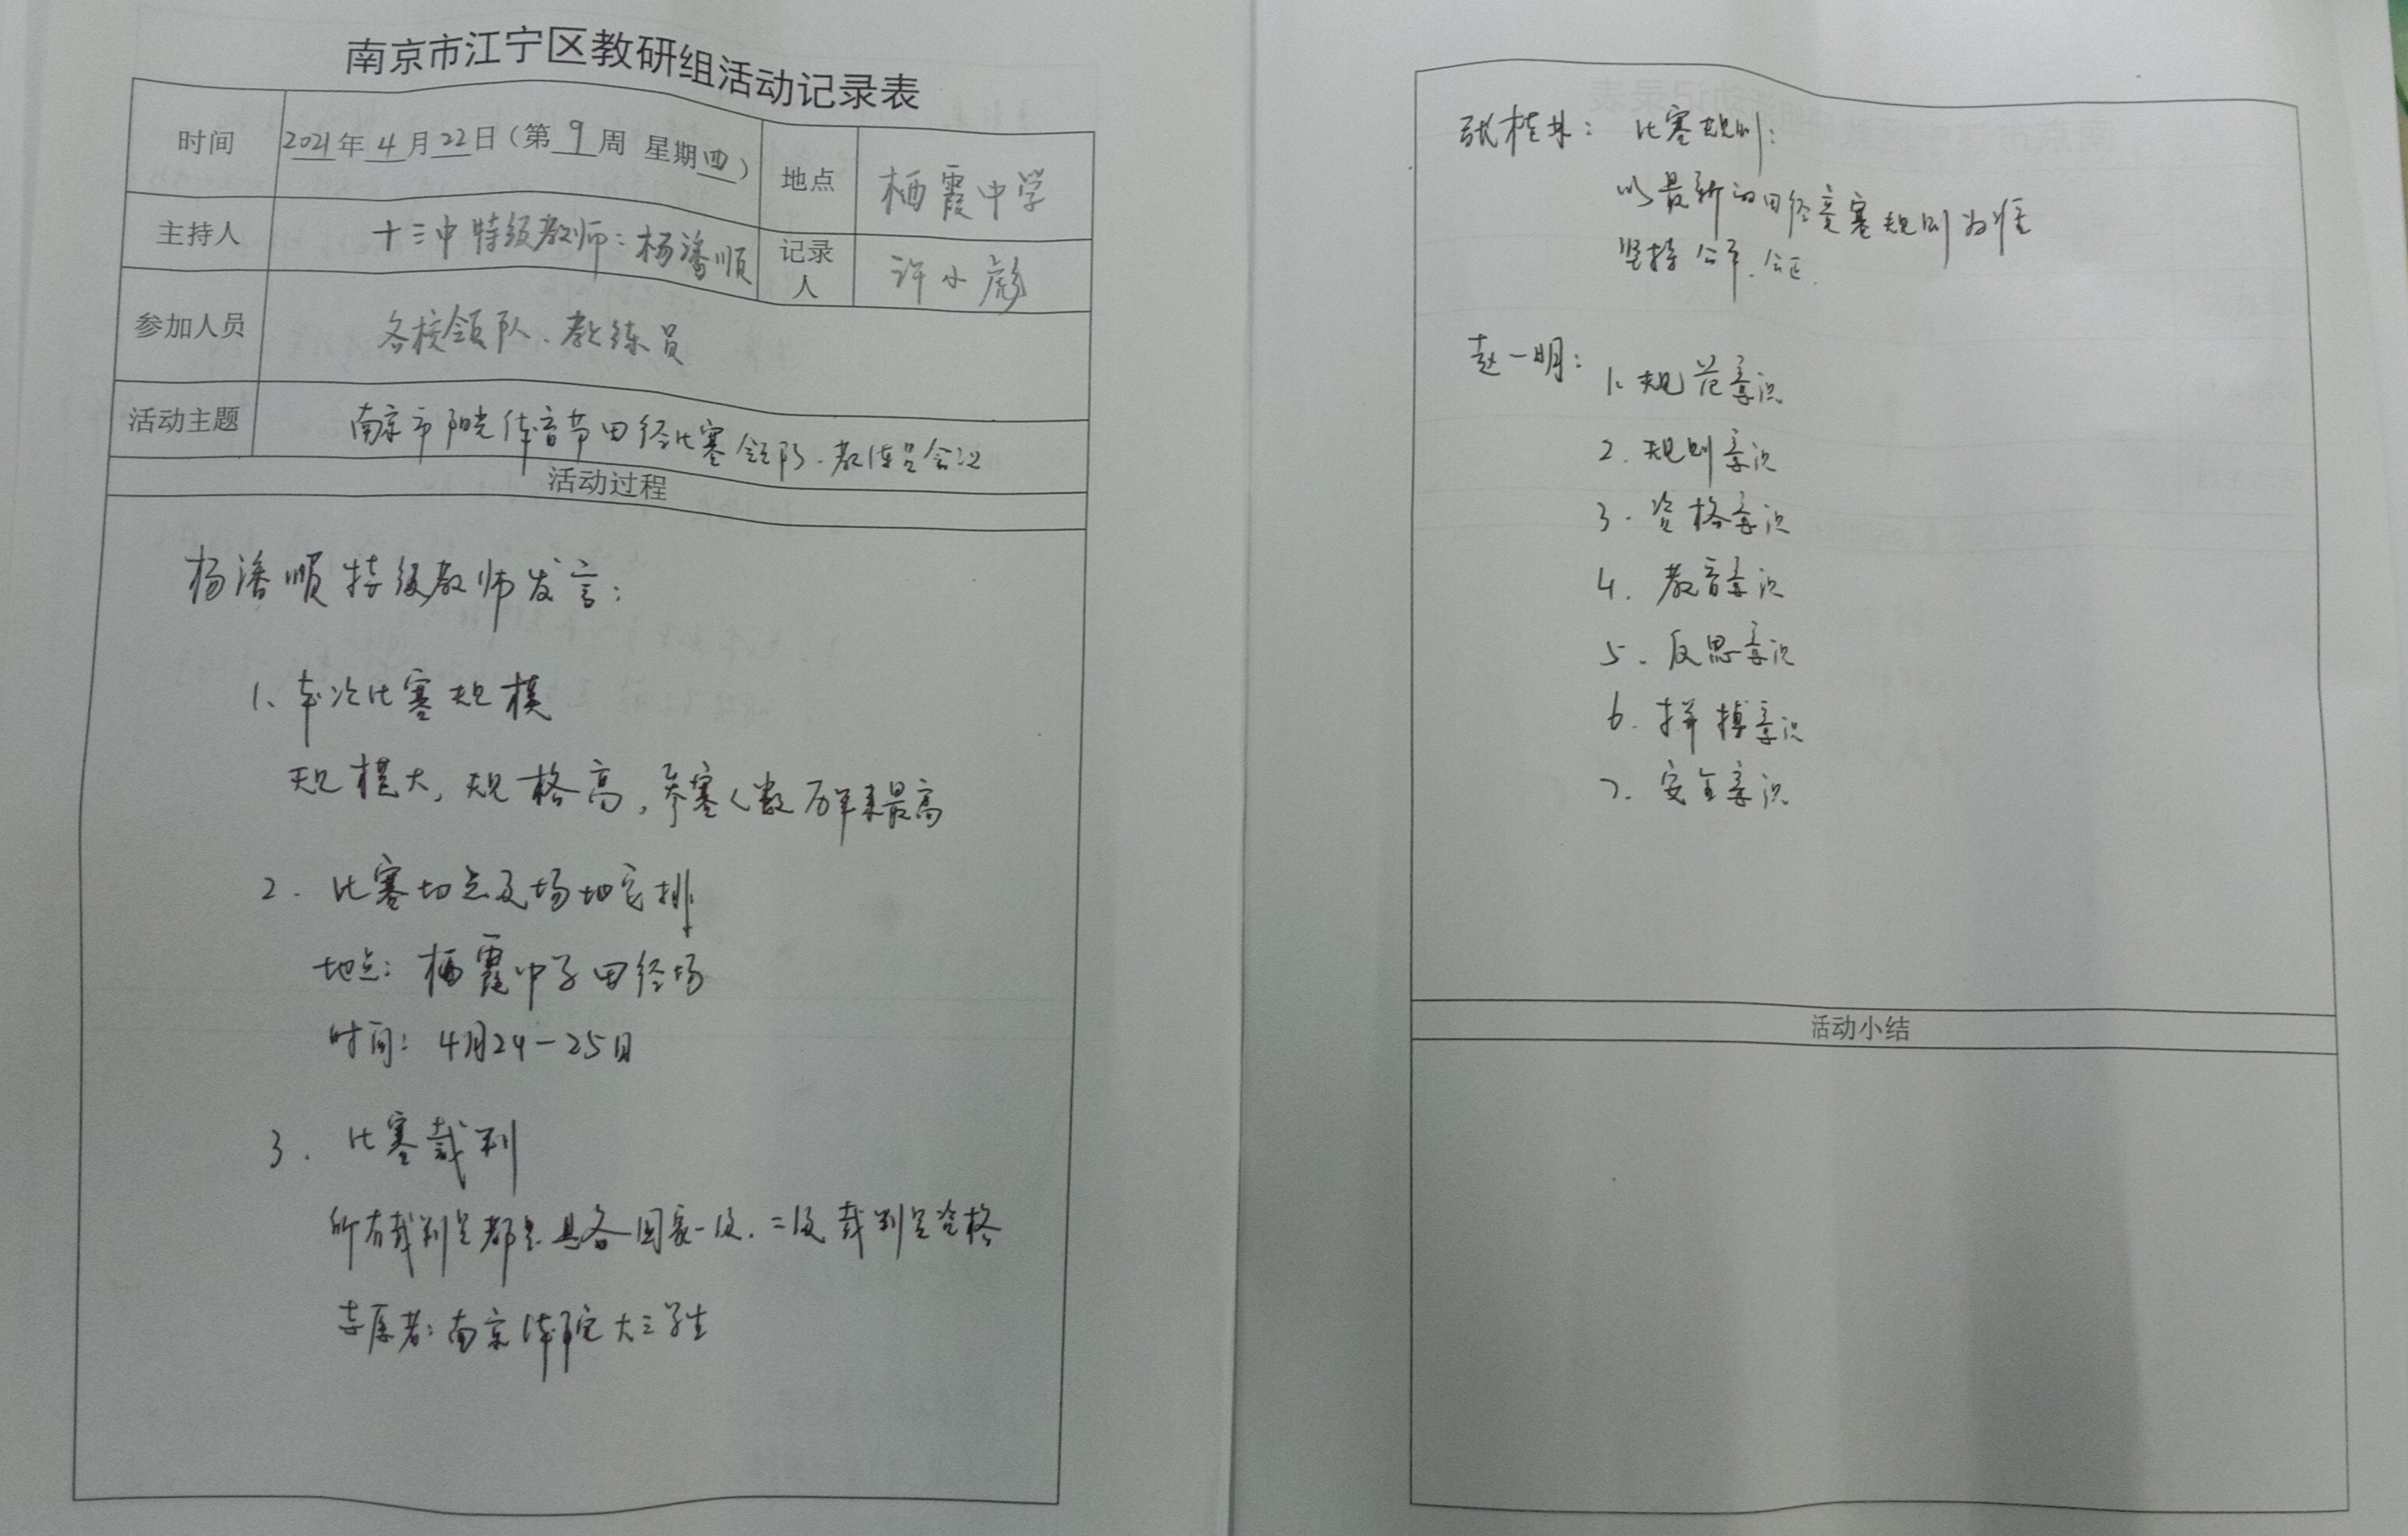 南京市江宁区教研组活动记录表
时间 2021年4月22日(第9周 星期四) 地点 栖霞中学
主持人 十三中特级教师:杨潘顺 记录人 许小彪
参加人员 各校领队、教练员
活动主题 南京市阳光体育节田径比赛领队、教练员会议
活动过程
杨潘顺特级教师发言:
1、本次比赛规模
规模大,规格高,参赛人数历年来最高
2. 比赛地点及场地安排
地点:栖霞中学田径场
时间:4月24-25日
3. 比赛裁判
所有裁判员都是具备国家一级、二级裁判员资格
志愿者:南京体院大三学生
张桂林: 比赛规则:
以最新的田径竞赛规则为准
坚持公平、公正.
赵一明: 1、规范意识
2. 规则意识
3. 资格意识
4. 教育意识
5. 反思意识
6. 拼搏意识
7. 安全意识
活动小结